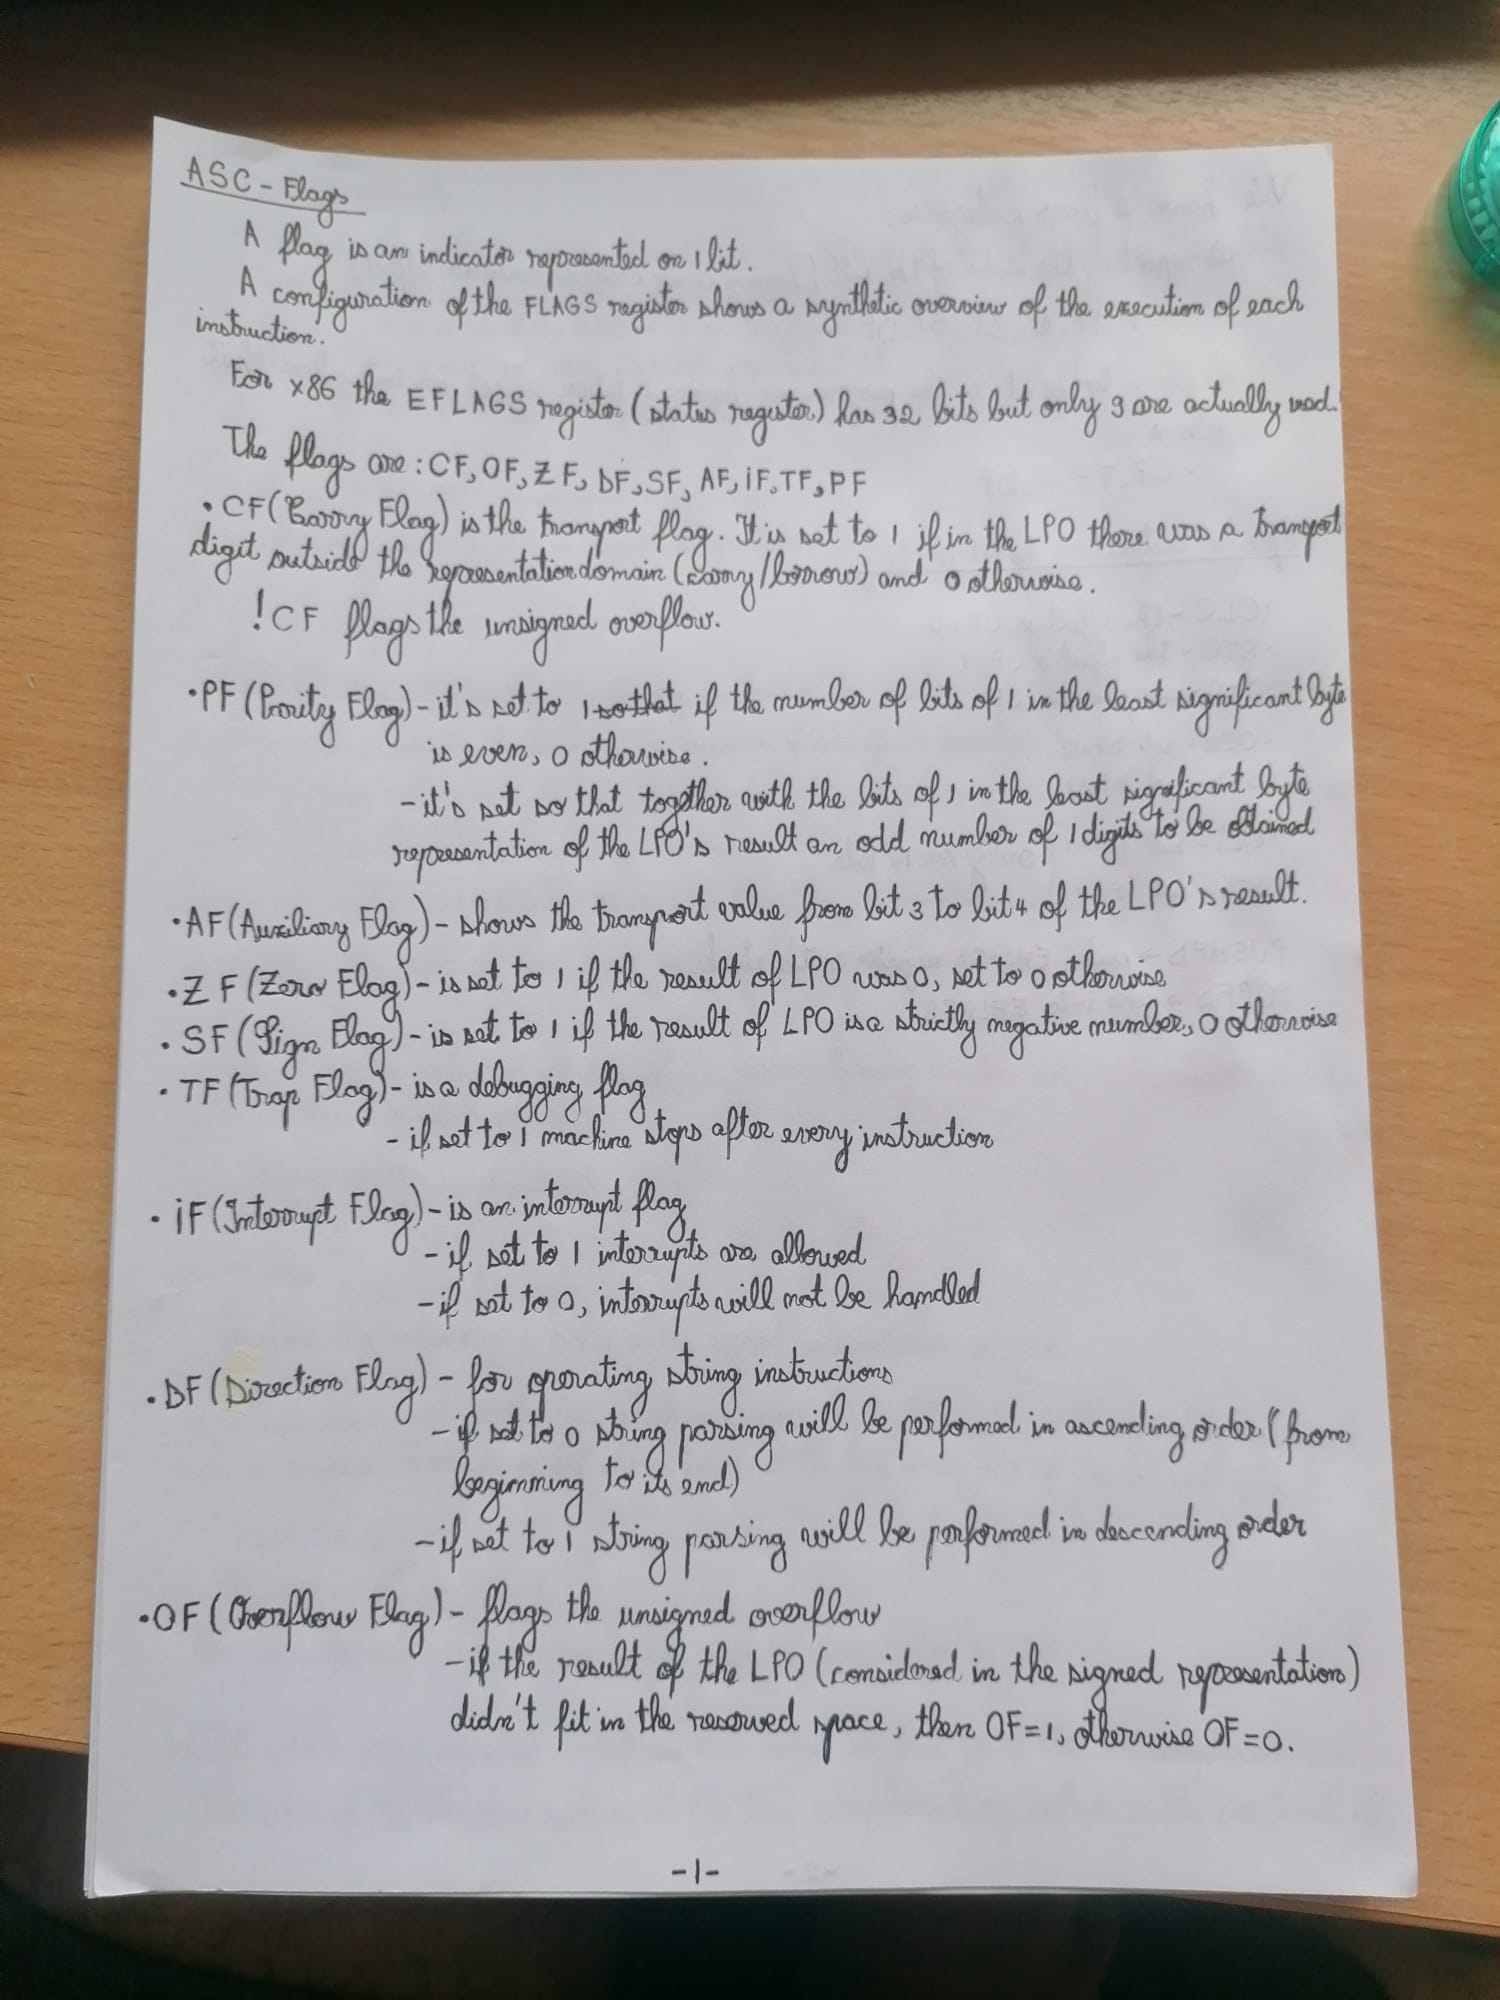 ASC - Flags
A flag is an indicator represented on 1 bit.
A configuration of the FLAGS register shows a synthetic overview of the execution of each
instruction.
For x86 the EFLAGS register (status register) has 32 bits but only 9 are actually used.
The flags are: CF, OF, ZF, DF, SF, AF, iF, TF, PF
• CF (Carry Flag) is the transport flag. It is set to 1 if in the LPO there was a transport
digit outside the representation domain (carry/borrow) and 0 otherwise.
! CF flags the unsigned overflow.
• PF (Parity Flag) - it's set to 1 so that if the number of bits of 1 in the least significant byte
is even, 0 otherwise.
- it's set so that together with the bits of 1 in the least significant byte
representation of the LPO's result an odd number of 1 digits to be obtained
• AF (Auxiliary Flag) - shows the transport value from bit 3 to bit 4 of the LPO's result.
• ZF (Zero Flag) - is set to 1 if the result of LPO was 0, set to 0 otherwise
• SF (Sign Flag) - is set to 1 if the result of LPO is a strictly negative number, 0 otherwise
• TF (Trap Flag) - is a debugging flag
- if set to 1 machine stops after every instruction
• iF (Interrupt Flag) - is an interrupt flag
- if set to 1 interrupts are allowed
- if set to 0, interrupts will not be handled
• DF (Direction Flag) - for operating string instructions
- if set to 0 string parsing will be performed in ascending order (from
beginning to its end)
- if set to 1 string parsing will be performed in descending order
• OF (Overflow Flag) - flags the unsigned overflow
- if the result of the LPO (considered in the signed representation)
didn't fit in the reserved space, then OF=1, otherwise OF=0.
-1-